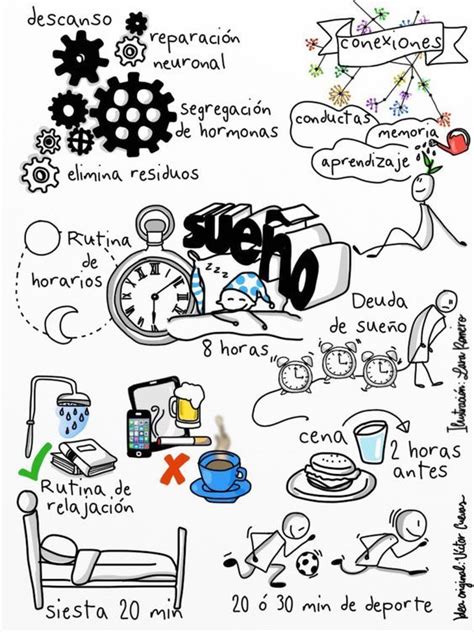 descanso
reparación
neuronal
segregación
de hormonas
elimina residuos
conexiones
conductas
memoria
aprendizaje
Rutina
de
horarios
sueño
zzz
8 horas
Deuda
de sueño
Rutina de
relajación
cena
2 horas
antes
siesta 20 min
20 ó 30 min de deporte
Idea original: Víctor Cuevas